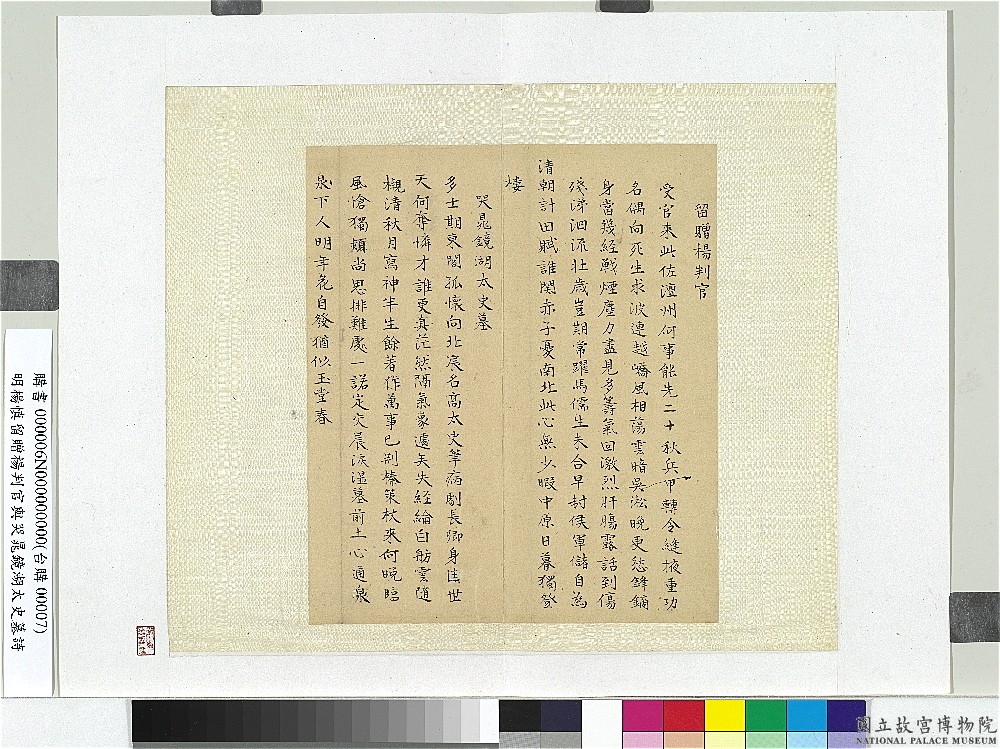 留贈楊判官
受官來此佐澶州何事能先二十秋兵甲轉令縫掖重功
名偶向死生求波連越嶠風相蕩雲暗吳淞晚更愁鋒鏑
身當幾經戰煙塵力盡見多籌氣回激烈肝腸露話到傷
殘涕泗流壯歲豈期常躍馬儒生未合早封侯軍儲自為
清朝計田賦誰閔赤子憂南北此心無少暇中原日暮獨登
樓
哭晁鏡湖太史墓
多士期東閣孤懷向北宸名高太史筆病劇長卿身借世
天何奪憐才誰更真茫然隔氣象遽矣失經綸白舫雲隨
櫬清秋月寫神半生餘著作萬事已荊榛策杖來何晚臨
風愴獨頻尚思排難處一諾定交晨淚濕墓前土心通泉
下人明年花自發猶似玉堂春
購書 000006N000000000(台購 00007)
明楊慎留贈楊判官與哭晁鏡湖太史墓詩
國立故宮博物院
NATIONAL PALACE MUSEUM